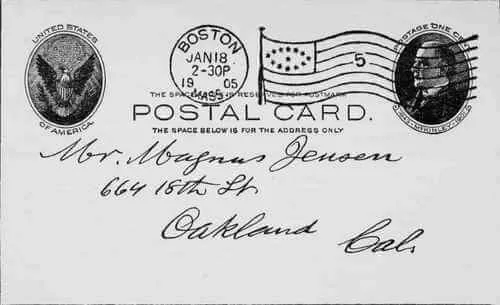 UNITED STATES
OF AMERICA
BOSTON
JAN 18
2-30P
19 05
MASS.
5
POSTAGE ONE CENT
THE SPACE ABOVE IS RESERVED FOR POSTMARK
POSTAL CARD.
THE SPACE BELOW IS FOR THE ADDRESS ONLY
Mr. Magnus Jensen
664 18th St
Oakland
Cal.